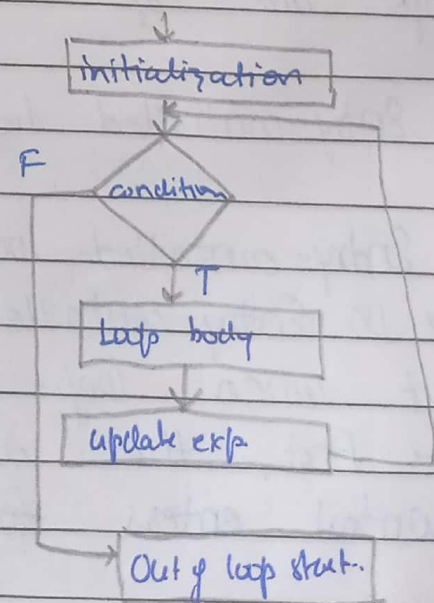 initialization
F
condition
T
Loop body
update exp.
Out of loop start.